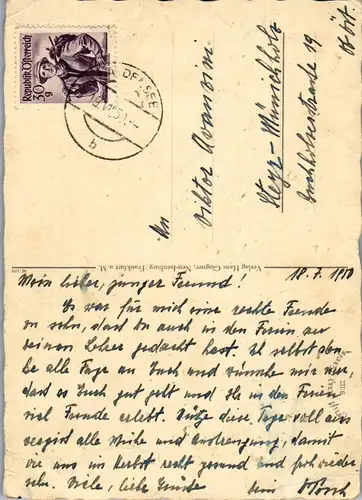 Republik Österreich
30 g
DELSEE
b
An
Viktor
Steyr - Münichholz
19
Verlag Hans Glogner, Neu-Isenburg/Frankfurt a. M.
18.7.1950
Mein lieber, junger Freund!
Es war für mich eine rechte Freude
zu sehn, dass Du auch in den Ferien an
deinen Lehrer gedacht hast. Ich selbst
alle Tage an Euch und wünsche mir nur,
dass es Euch gut geht und Ihr in den Ferien
viel Freude erlebt. diese Tage voll aus
vergiss alle Mühe und Anstrengung, damit
wir uns im Herbst recht gesund und froh wieder
sehn. Viele, liebe Grüsse
Dein